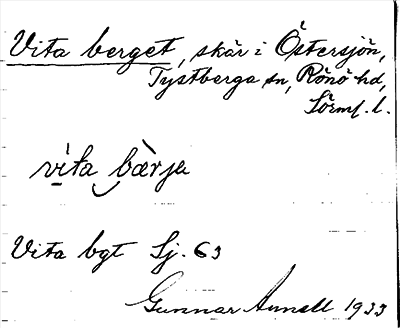 Vita berget, skär i Östersjön,
Tystberga sn, Rönö hd,
Sörml. l.
vita bärja
Vita bgt Sj. 63
Gunnar 1933